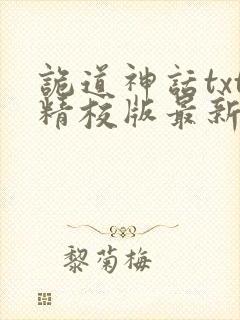 詭道神話txt
精校版最新
黎菊梅